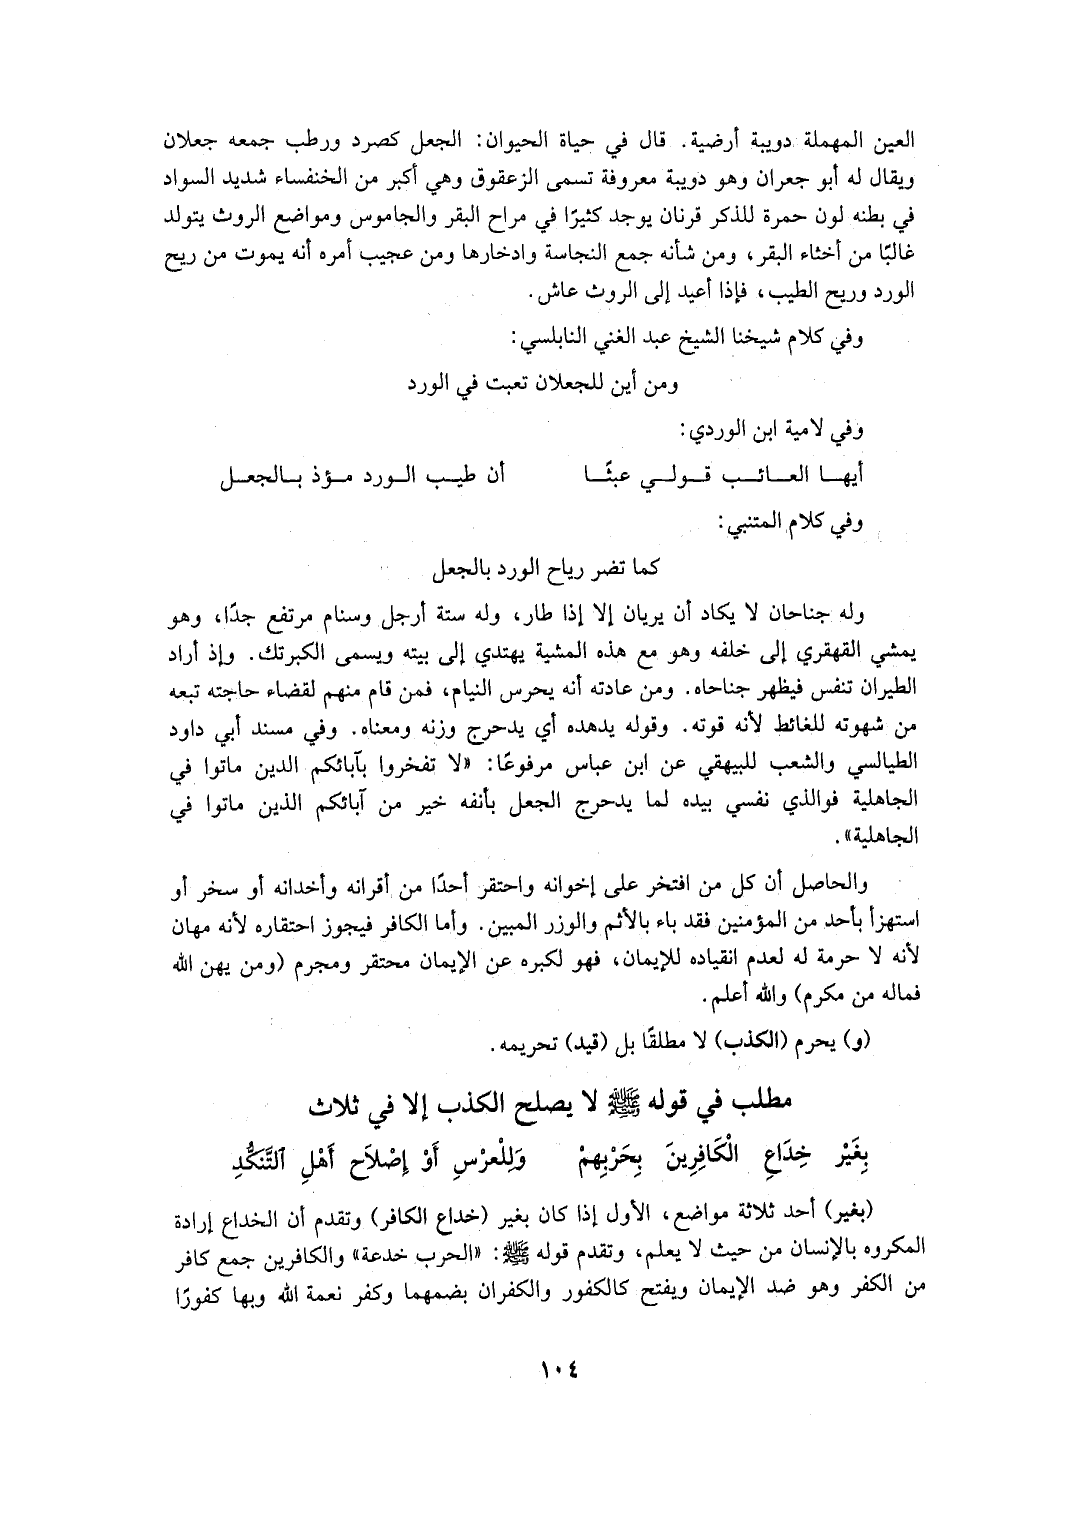 العين المهملة دويبة أرضية. قال في حياة الحيوان: الجعل كصرد ورطب جمعه جعلان
ويقال له أبو جعران وهو دويبة معروفة تسمى الزعقوق وهي أكبر من الخنفساء شديد السواد
في بطنه لون حمرة للذكر قرنان يوجد كثيرًا في مراح البقر والجاموس ومواضع الروث يتولد
غالبًا من أخثاء البقر، ومن شأنه جمع النجاسة وادخارها ومن عجيب أمره أنه يموت من ريح
الورد وريح الطيب، فإذا أعيد إلى الروث عاش.
وفي كلام شيخنا الشيخ عبد الغني النابلسي:
ومن أين للجعلان تعبت في الورد
وفي لامية ابن الوردي:
أيها العائب قولي عبثًا أن طيب الورد مؤذ بالجعل
وفي كلام المتنبي:
كما تضر رياح الورد بالجعل
وله جناحان لا يكاد أن يريان إلا إذا طار، وله ستة أرجل وسنام مرتفع جدًا، وهو
يمشي القهقري إلى خلفه وهو مع هذه المشية يهتدي إلى بيته ويسمى الكبرتك. وإذ أراد
الطيران تنفس فيظهر جناحاه. ومن عادته أنه يحرس النيام، فمن قام منهم لقضاء حاجته تبعه
من شهوته للغائط لأنه قوته. وقوله يدهده أي يدحرج وزنه ومعناه. وفي مسند أبي داود
الطيالسي والشعب للبيهقي عن ابن عباس مرفوعًا: «لا تفخروا بآبائكم الدين ماتوا في
الجاهلية فوالذي نفسي بيده لما يدحرج الجعل بأنفه خير من آبائكم الذين ماتوا في
الجاهلية».
والحاصل أن كل من افتخر على إخوانه واحتقر أحدًا من أقرانه وأخدانه أو سخر أو
استهزأ بأحد من المؤمنين فقد باء بالأثم والوزر المبين. وأما الكافر فيجوز احتقاره لأنه مهان
لأنه لا حرمة له لعدم انقياده للإيمان، فهو لكبره عن الإيمان محتقر ومجرم (ومن يهن الله
فماله من مكرم) والله أعلم.
(و) يحرم (الكذب) لا مطلقًا بل (قيد) تحريمه.
مطلب في قوله ﷺ لا يصلح الكذب إلا في ثلاث
بِغَيْرِ خِدَاعِ الْكَافِرِينَ بِحَرْبِهِمْ وَلِلْعرْسِ أَوْ إِصْلَاحِ أَهْلِ التَّنَكُّدِ
(بغير) أحد ثلاثة مواضع، الأول إذا كان بغير (خداع الكافر) وتقدم أن الخداع إرادة
المكروه بالإنسان من حيث لا يعلم، وتقدم قوله ﷺ: «الحرب خدعة» والكافرين جمع كافر
من الكفر وهو ضد الإيمان ويفتح كالكفور والكفران بضمهما وكفر نعمة الله وبها كفورًا
١٠٤